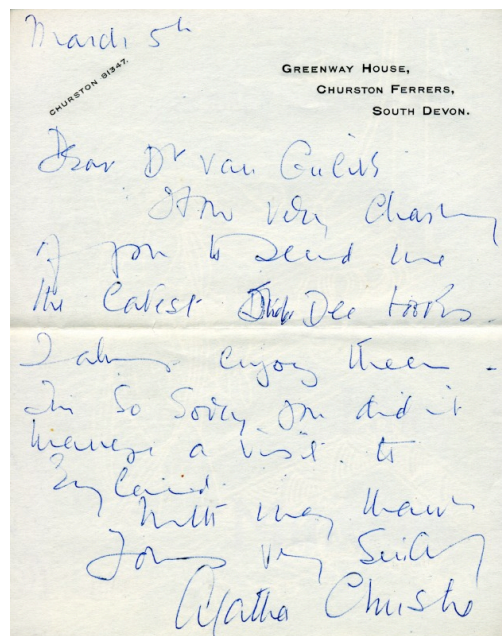 March 5th
CHURSTON 81347.
GREENWAY HOUSE,
CHURSTON FERRERS,
SOUTH DEVON.
Dear Dr van Gulik
How very charming
of you to send me
the latest Dee books.
I always enjoy them -
I'm so sorry you didn't
manage a visit to
England.
With many thanks
Yours very sincerely
Agatha Christie